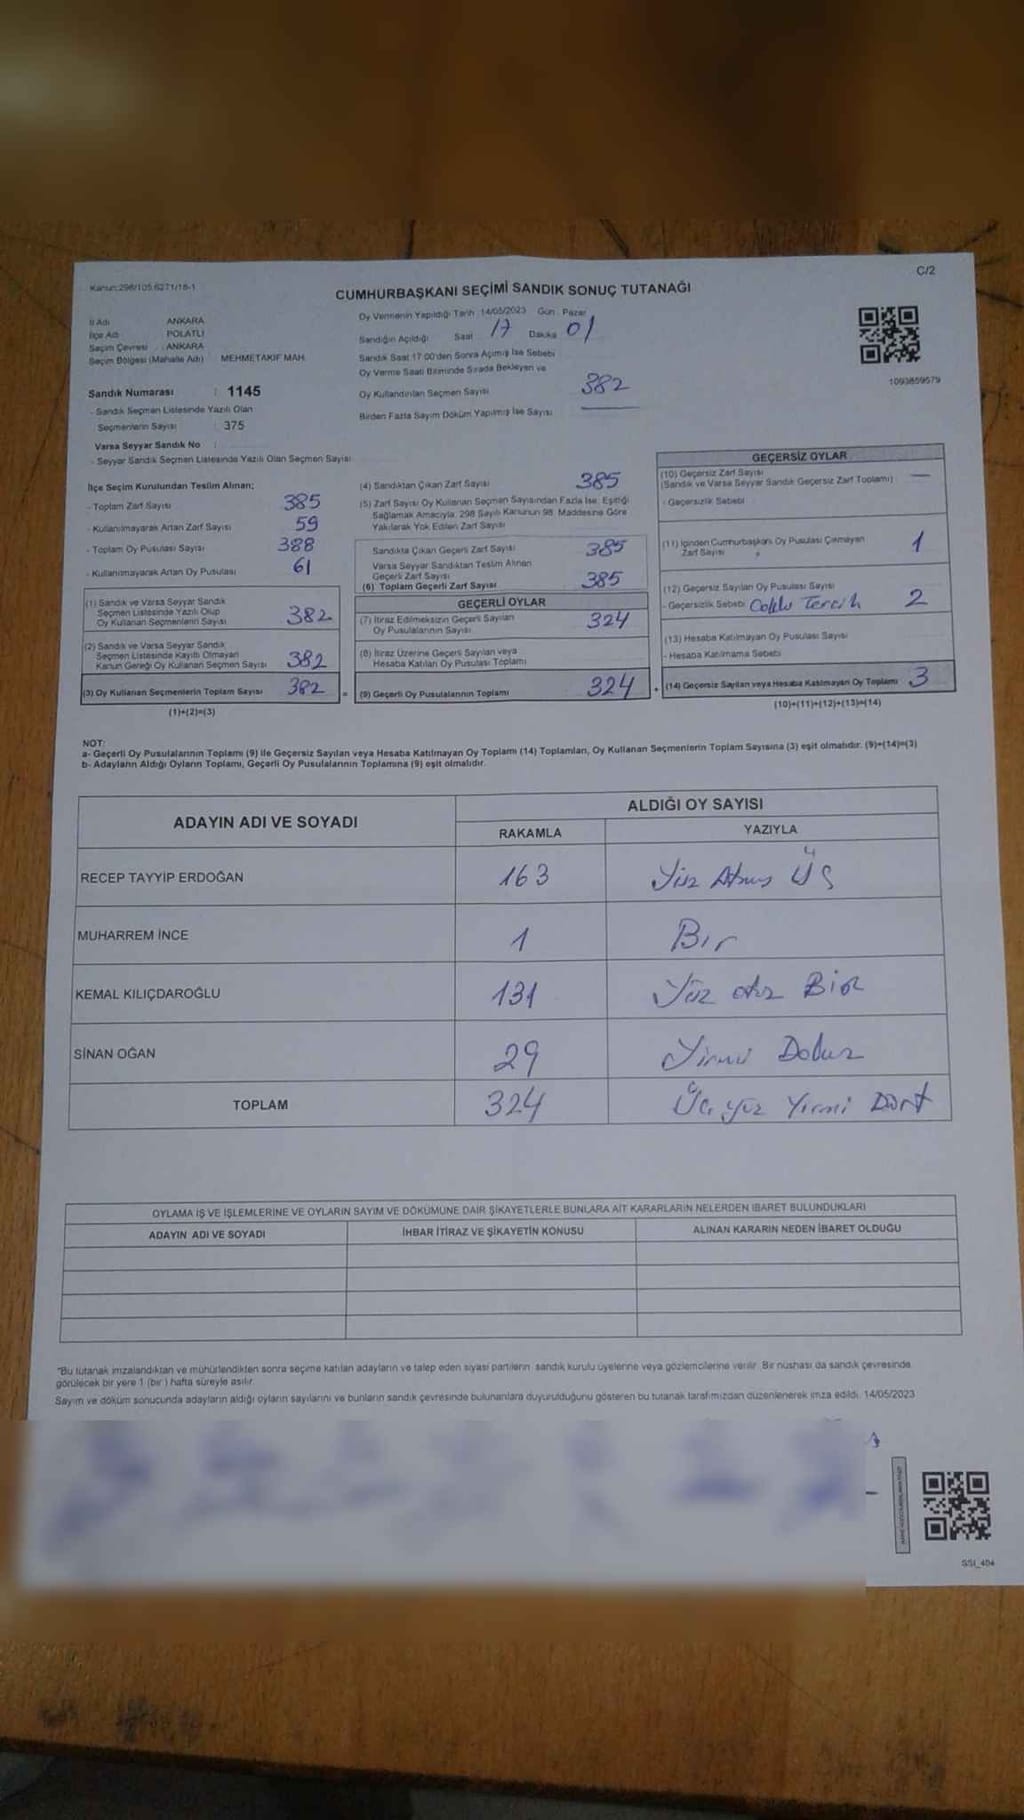 C/2
Kanun:298/105.6271/18-1
CUMHURBAŞKANI SEÇİMİ SANDIK SONUÇ TUTANAĞI
İl Adı ANKARA
İlçe Adı POLATLI
Seçim Çevresi : ANKARA
Seçim Bölgesi (Mahalle Adı) MEHMETAKİF MAH.
Sandık Numarası : 1145
- Sandık Seçmen Listesinde Yazılı Olan
Seçmenlerin Sayısı : 375
Varsa Seyyar Sandık No :
- Seyyar Sandık Seçmen Listesinde Yazılı Olan Seçmen Sayısı
Oy Vermenin Yapıldığı Tarih 14/05/2023 Gün Pazar
Sandığın Açıldığı Saat 17 Dakika 01
Sandık Saat 17:00'den Sonra Açımış İse Sebebi
Oy Verme Saati Bitiminde Sırada Bekleyen ve
Oy Kullandırılan Seçmen Sayısı 382
Birden Fazla Sayım Döküm Yapılmış İse Sayısı
1093859579
İlçe Seçim Kurulundan Teslim Alınan;
- Toplam Zarf Sayısı 385
- Kullanılmayarak Artan Zarf Sayısı 59
- Toplam Oy Pusulası Sayısı 388
- Kullanılmayarak Artan Oy Pusulası 61
(1) Sandık ve Varsa Seyyar Sandık
Seçmen Listesinde Yazılı Olup
Oy Kullanan Seçmenlerin Sayısı 382
(2) Sandık ve Varsa Seyyar Sandık
Seçmen Listesinde Kayıtlı Olmayan
Kanun Gereği Oy Kullanan Seçmen Sayısı 382
(3) Oy Kullanan Seçmenlerin Toplam Sayısı 382 =
(1)+(2)=(3)
(4) Sandıktan Çıkan Zarf Sayısı 385
(5) Zarf Sayısı Oy Kullanan Seçmen Sayısından Fazla İse, Eşitliği
Sağlamak Amacıyla, 298 Sayılı Kanunun 98. Maddesine Göre
Yakılarak Yok Edilen Zarf Sayısı
Sandıkta Çıkan Geçerli Zarf Sayısı 385
Varsa Seyyar Sandıktan Teslim Alınan
Geçerli Zarf Sayısı
(6) Toplam Geçerli Zarf Sayısı 385
GEÇERLİ OYLAR
(7) İtiraz Edilmeksizin Geçerli Sayılan
Oy Pusulalarının Sayısı 324
(8) İtiraz Üzerine Geçerli Sayılan veya
Hesaba Katılan Oy Pusulası Toplamı
(9) Geçerli Oy Pusulalarının Toplamı 324 +
GEÇERSİZ OYLAR
(10) Geçersiz Zarf Sayısı
(Sandık ve Varsa Seyyar Sandık Geçersiz Zarf Toplamı) —
- Geçersizlik Sebebi
(11) İçinden Cumhurbaşkanı Oy Pusulası Çıkmayan
Zarf Sayısı 1
(12) Geçersiz Sayılan Oy Pusulası Sayısı
- Geçersizlik Sebebi Coklu Tercih 2
(13) Hesaba Katılmayan Oy Pusulası Sayısı
- Hesaba Katılmama Sebebi
(14) Geçersiz Sayılan veya Hesaba Katılmayan Oy Toplamı 3
(10)+(11)+(12)+(13)=(14)
NOT:
a- Geçerli Oy Pusulalarının Toplamı (9) ile Geçersiz Sayılan veya Hesaba Katılmayan Oy Toplamı (14) Toplamları, Oy Kullanan Seçmenlerin Toplam Sayısına (3) eşit olmalıdır. (9)+(14)=(3)
b- Adayların Aldığı Oyların Toplamı, Geçerli Oy Pusulalarının Toplamına (9) eşit olmalıdır.
ADAYIN ADI VE SOYADI
ALDIĞI OY SAYISI
RAKAMLA YAZIYLA
RECEP TAYYİP ERDOĞAN 163 Yüz Atmış Üç
MUHARREM İNCE 1 Bir
KEMAL KILIÇDAROĞLU 131 Yüz otuz Bir
SİNAN OĞAN 29 Yirmi Dokuz
TOPLAM 324 Üç yüz Yirmi Dört
OYLAMA İŞ VE İŞLEMLERİNE VE OYLARIN SAYIM VE DÖKÜMÜNE DAİR ŞİKAYETLERLE BUNLARA AİT KARARLARIN NELERDEN İBARET BULUNDUKLARI
ADAYIN ADI VE SOYADI İHBAR İTİRAZ VE ŞİKAYETİN KONUSU ALINAN KARARIN NEDEN İBARET OLDUĞU
*Bu tutanak imzalandıktan ve mühürlendikten sonra seçime katılan adayların ve talep eden siyasi partilerin sandık kurulu üyelerine veya gözlemcilerine verilir. Bir nüshası da sandık çevresinde
görülecek bir yere 1 (bir ) hafta süreyle asılır.
Sayım ve döküm sonucunda adayların aldığı oyların sayılarını ve bunların sandık çevresinde bulunanlara duyurulduğunu gösteren bu tutanak tarafımızdan düzenlenerek imza edildi. 14/05/2023
SSI_404